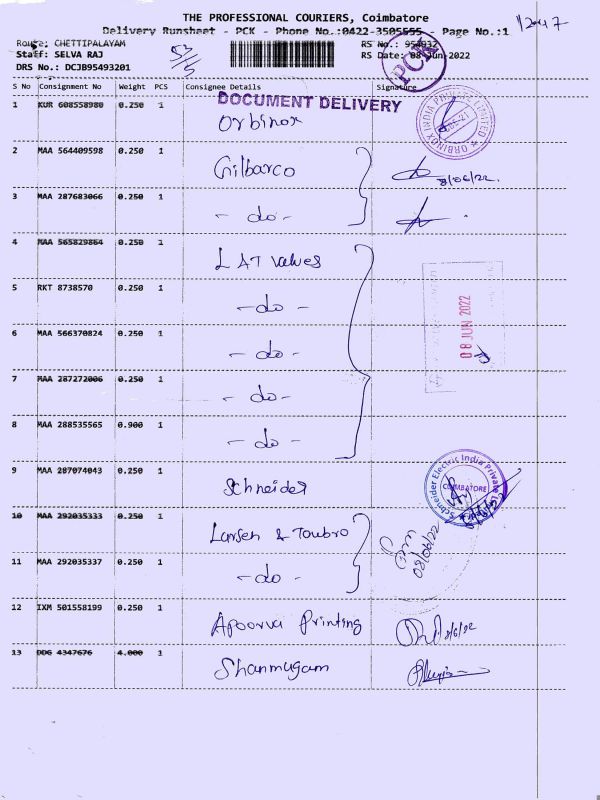 THE PROFESSIONAL COURIERS, Coimbatore
Delivery Runsheet - PCK - Phone No.:0422-3505555 - Page No.:1
Route: CHETTIPALAYAM RS No.: 954932
Staff: SELVA RAJ RS Date: 08-Jun-2022
DRS No.: DCJB95493201
PCK
S No Consignment No Weight PCS Consignee Details Signature
DOCUMENT DELIVERY
1 KUR 608558980 0.250 1 Orbinox
ORBINOX INDIA PRIVATE LIMITED
2 MAA 564409598 0.250 1 Gilbarco 8/06/22.
3 MAA 287683066 0.250 1 - do -
4 MAA 565829864 0.250 1 L AT valves
5 RKT 8738570 0.250 1 - do -
08 JUN 2022
6 MAA 566370824 0.250 1 - do -
7 MAA 287272006 0.250 1 - do -
8 MAA 288535565 0.900 1 - do -
9 MAA 287074043 0.250 1 Schneider
Schneider Electric India Private
COIMBATORE
10 MAA 292035333 0.250 1 Larsen & Toubro
08/06/22
11 MAA 292035337 0.250 1 - do -
12 IXM 501558199 0.250 1 Apoorva Printing 8/6/22
13 DDG 4347676 4.000 1 Shanmugam